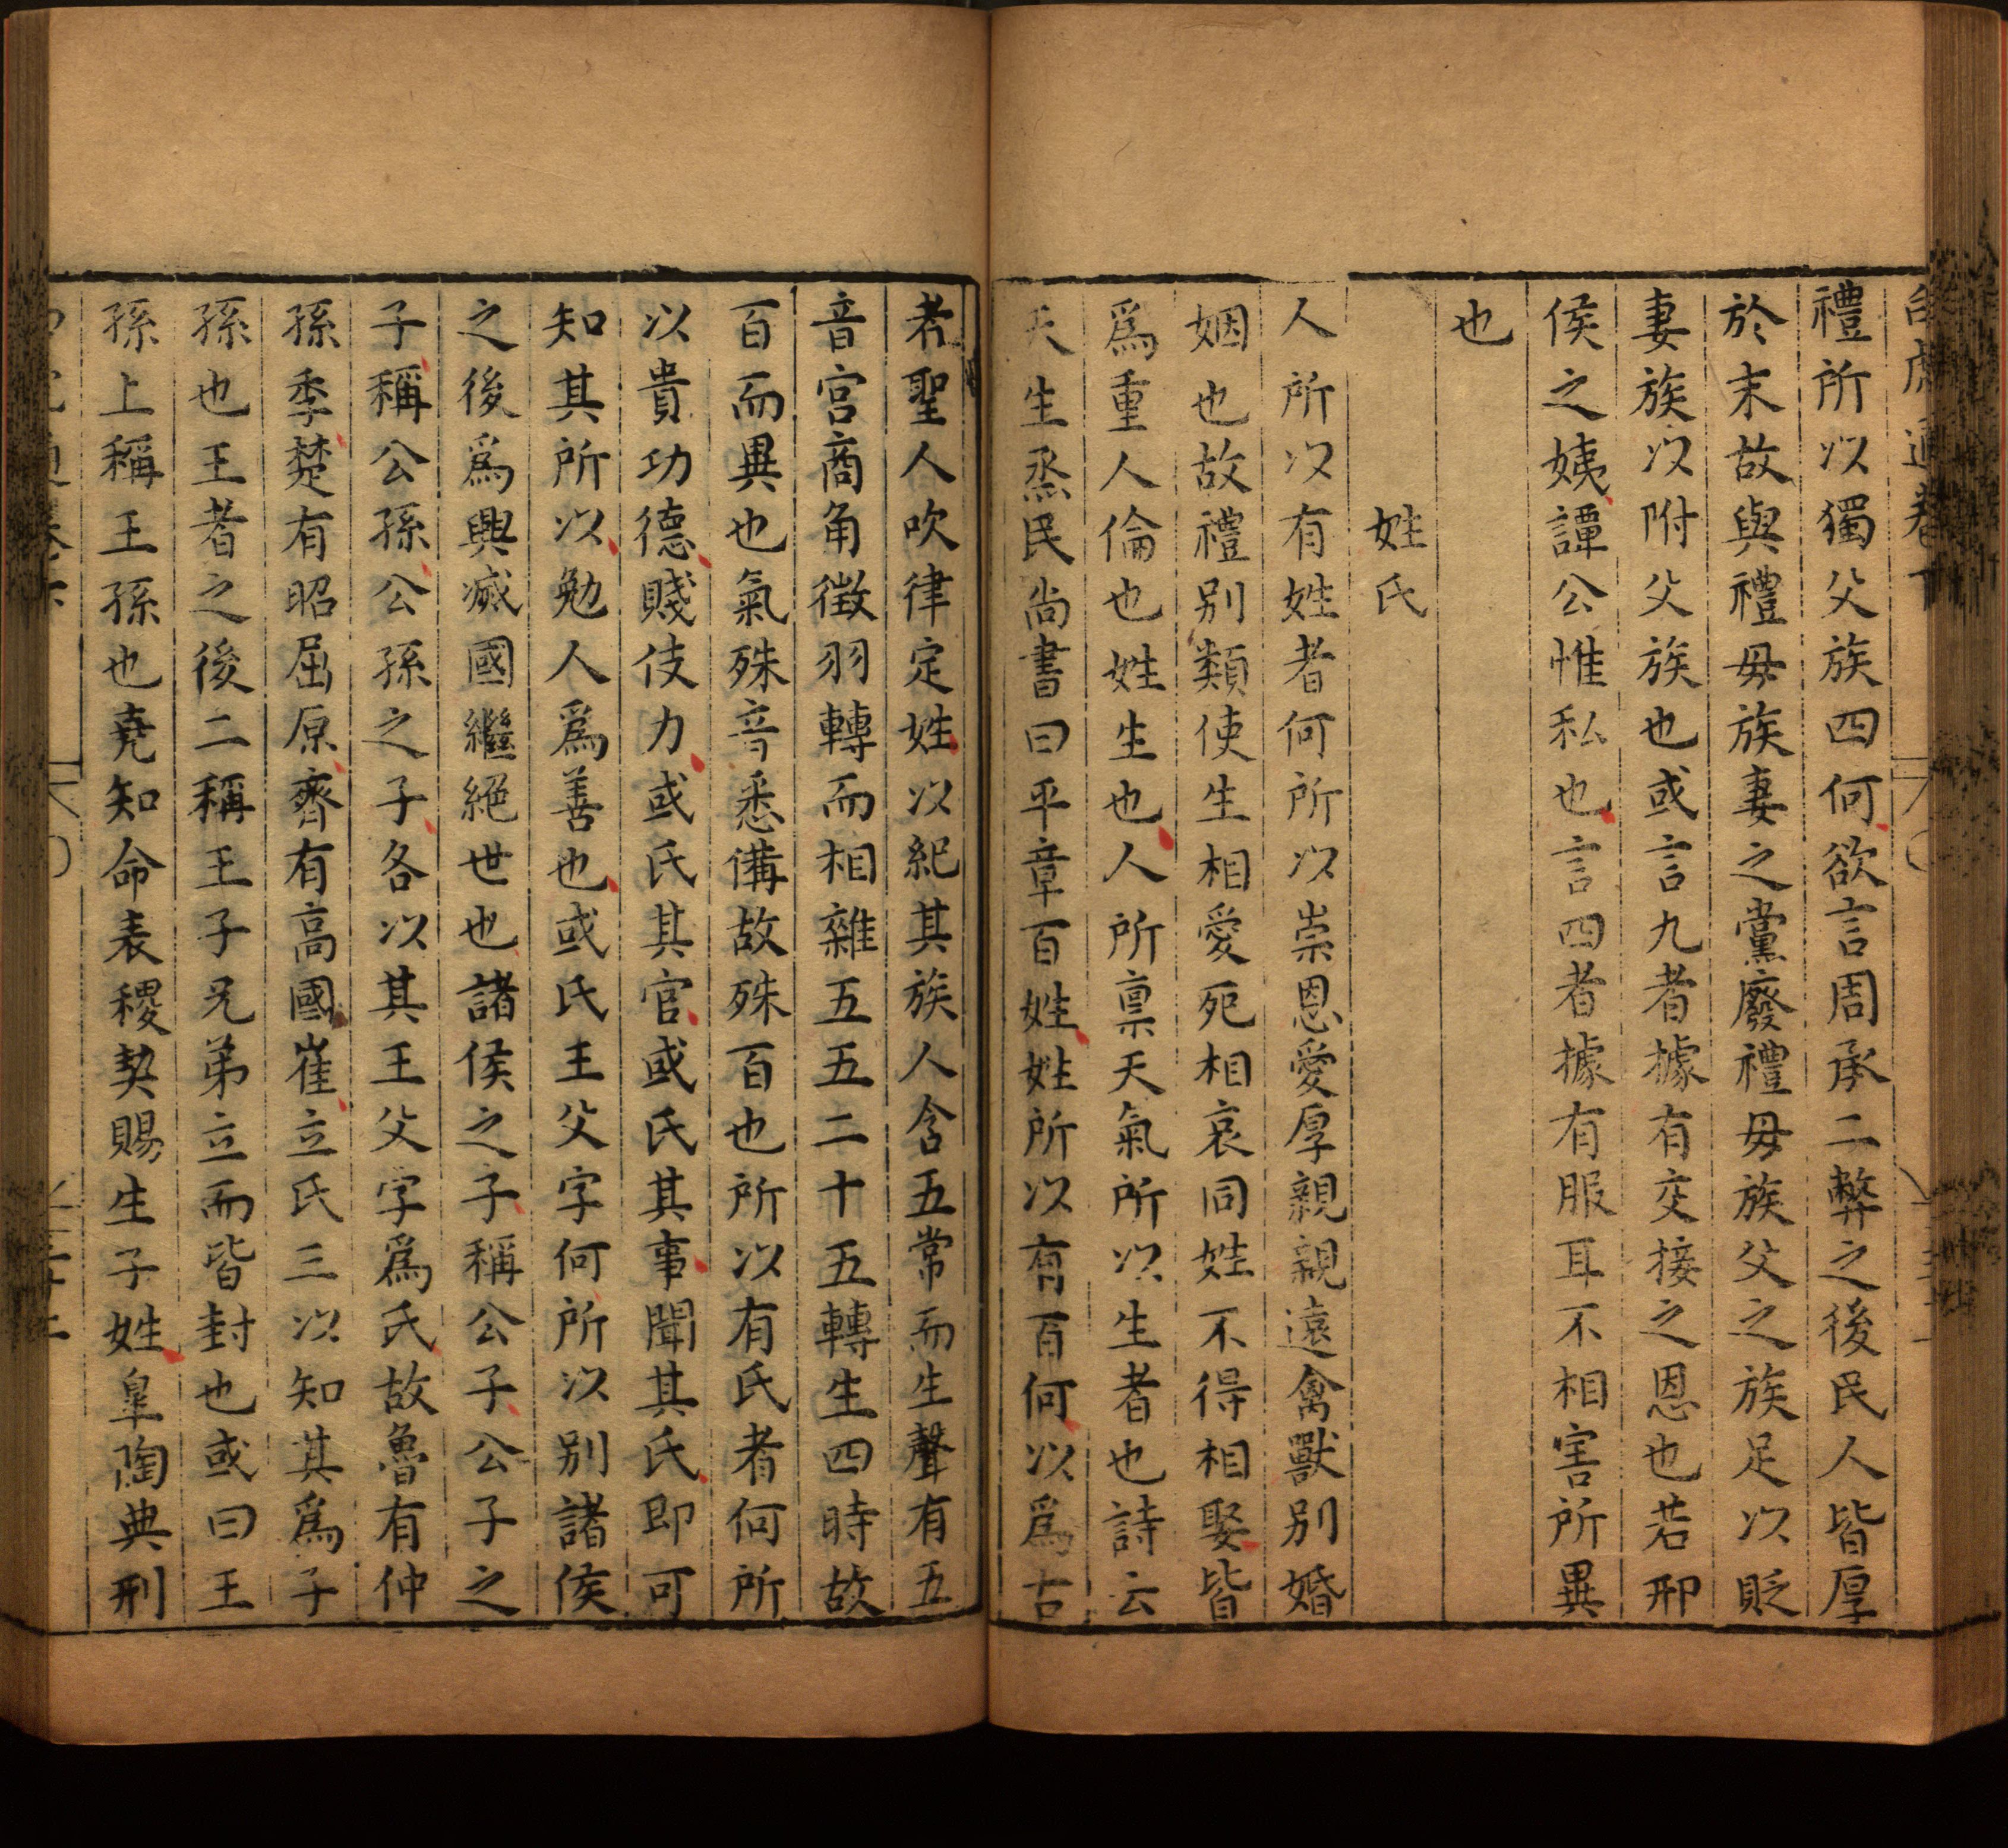 白虎通卷下
禮所以獨父族四何欲言周承二弊之後民人皆厚
於末故與禮母族妻之黨廢禮母族父之族足以貶
妻族以附父族也或言九者據有交接之恩也若邢
侯之姨譚公惟私也言四者據有服耳不相害所異
也
姓氏
人所以有姓者何所以崇恩愛厚親親遠禽獸別婚
姻也故禮別類使生相愛死相哀同姓不得相娶皆
爲重人倫也姓生也人所禀天氣所以生者也詩云
天生烝民尚書曰平章百姓姓所以有百何以爲古
者聖人吹律定姓以紀其族人含五常而生聲有五
音宮商角徵羽轉而相雜五五二十五轉生四時故
百而異也氣殊音悉備故殊百也所以有氏者何所
以貴功德賤伎力或氏其官或氏其事聞其氏即可
知其所以勉人爲善也或氏王父字何所以別諸侯
之後爲興滅國繼絕世也諸侯之子稱公子公子之
子稱公孫公孫之子各以其王父字爲氏故魯有仲
孫季楚有昭屈原齊有高國崔立氏三以知其爲子
孫也王者之後二稱王子兄弟立而皆封也或曰王
孫上稱王孫也堯知命表稷契賜生子姓臯陶典刑